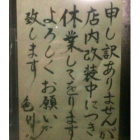 申し訳ありませんが
店内改装中につき
休業しております
よろしくお願い
致します